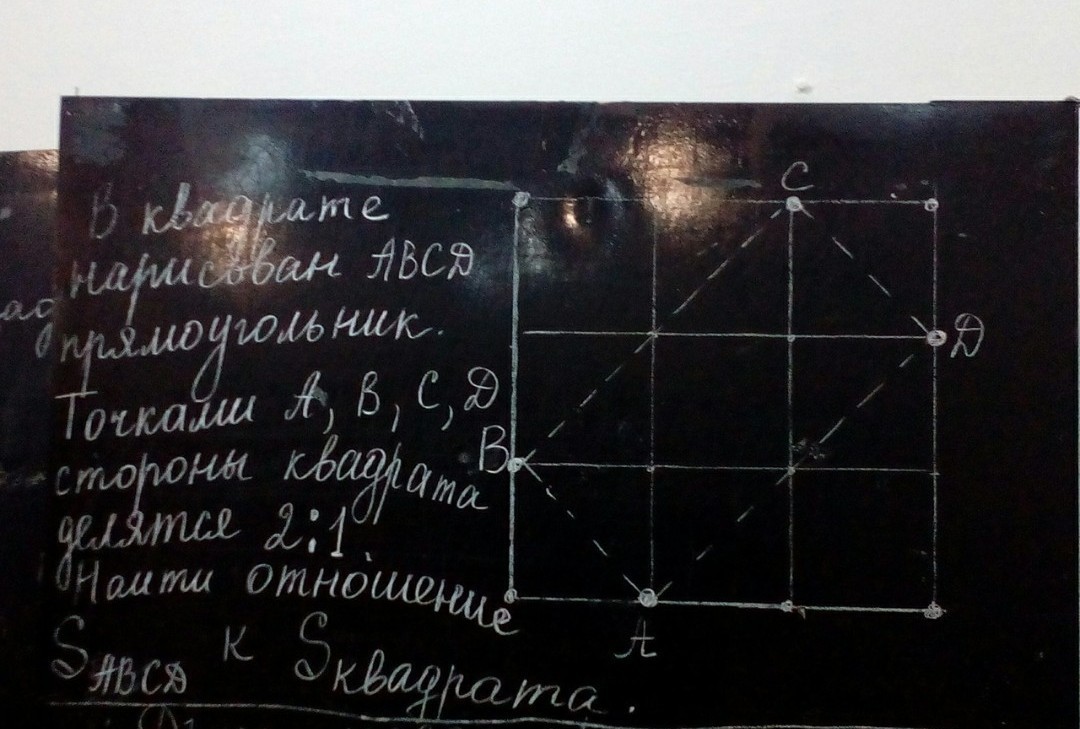 В квадрате
нарисован ABCD
прямоугольник.
Точками A, B, C, D
стороны квадрата
делятся 2:1
Найти отношение
S ABCD к S квадрата.
C
D
B
A